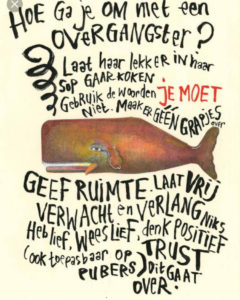 HOE GA JE OM MET EEN
OVERGANGSTER?
LAAT HAAR LEKKER IN HAAR
SOP GAAR KOKEN
GEBRUIK de WOORDEN JE MOET
NIET. MAAK ER GÉÉN GRAPJES
over
GEEF RUIMTE. LAAT VRIJ
VERWACHT en VERLANG Niks
Heb lief, WEES LIEF, denk POSITIEF
(ook toepasbaar op PUBERS) TRUST
Dit GAAT
OVER.